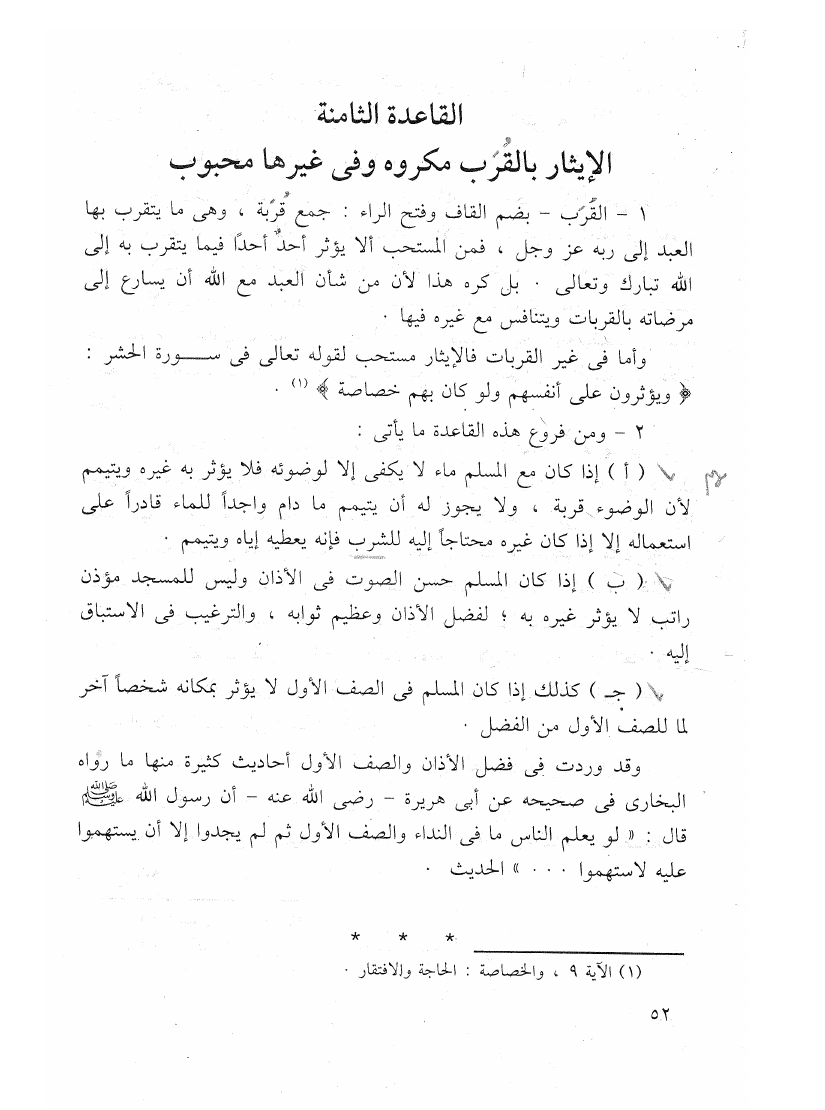 القاعدة الثامنة
الإيثار بالقُرَب مكروه وفى غيرها محبوب
١ - القُرَب - بضم القاف وفتح الراء : جمع قُرْبة ، وهى ما يتقرب بها
العبد إلى ربه عز وجل ، فمن المستحب ألا يؤثر أحدٌ أحدًا فيما يتقرب به إلى
الله تبارك وتعالى . بل كره هذا لأن من شأن العبد مع الله أن يسارع إلى
مرضاته بالقربات ويتنافس مع غيره فيها .
وأما فى غير القربات فالإيثار مستحب لقوله تعالى فى سـورة الحشر :
﴿ ويؤثرون على أنفسهم ولو كان بهم خصاصة ﴾ (١) .
٢ - ومن فروع هذه القاعدة ما يأتى :
( أ ) إذا كان مع المسلم ماء لا يكفى إلا لوضوئه فلا يؤثر به غيره ويتيمم
لأن الوضوء قربة ، ولا يجوز له أن يتيمم ما دام واجداً للماء قادراً على
استعماله إلا إذا كان غيره محتاجاً إليه للشرب فإنه يعطيه إياه ويتيمم .
( ب ) إذا كان المسلم حسن الصوت فى الأذان وليس للمسجد مؤذن
راتب لا يؤثر غيره به ؛ لفضل الأذان وعظيم ثوابه ، والترغيب فى الاستباق
إليه .
( جـ ) كذلك إذا كان المسلم فى الصف الأول لا يؤثر بمكانه شخصاً آخر
لما للصف الأول من الفضل .
وقد وردت فى فضل الأذان والصف الأول أحاديث كثيرة منها ما رواه
البخارى فى صحيحه عن أبى هريرة - رضى الله عنه - أن رسول الله ﷺ
قال : « لو يعلم الناس ما فى النداء والصف الأول ثم لم يجدوا إلا أن يستهموا
عليه لاستهموا . . . » الحديث .
* * *
(١) الآية ٩ ، والخصاصة : الحاجة والافتقار .
٥٢